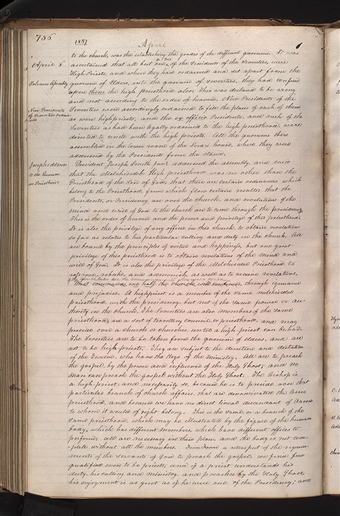 756
1837
April
to the church, was also establishing the grades of the different quorums. It was
April 6
ascertained that all but one or two of the Presidents of the Seventies were
High Priests, and when they had ordained and set apart from the
Solemn Assembly
quorum of Elders, into the quorum of Seventies, they had conferred
upon them the high priesthood also. This was declared to be wrong
and not according to the order of heaven. New Presidents of the
New Presidents
Seventies were accordingly ordained to fill the places of such of them
as were high priests, and the ex officio Presidents, and such of the
Seventies as had been legally ordained to the high priesthood were
directed to unite with the high priests. All the quorums then
assembled in the lower room of the Lord's house, where they were
addressed by the Presidents from the stand.
President Joseph Smith Junr. addressed the assembly, and said
that the Melchisedek High priesthood was no other than the
Priesthood of the Son of God; that there are certain ordinances which
belong to the Priesthood, from which flow certain results; that the
Presidents, or Presidency are over the church, and revelations of the
mind and will of God to the church are to come through the presidency.
This is the order of heaven and the power and privilege of this priesthood.
It is also the privilege of any officer in this church, to obtain revelations
so far as relates to his particular calling and duty in the church. All
are bound by the principles of virtue and happiness, but one great
privilege of this priesthood is to obtain revelations of the mind and
will of God. It is also the privilege of the Melchisedek Priesthood to
reprove, rebuke, and admonish, as well as to receive revelations.
and prejudice. A high priest is a member of the same melchisedek
priesthood, with the presidency, but not of the same power or au-
thority in the church. The seventies are also members of the same
priesthood, are a sort of travelling council, or priesthood, and may
preside over a church or churches, until a high priest can be had.
The Seventies are to be taken from the quorum of elders, and are
not to be high priests. They are subject to the direction and dictation
of the Twelve, who have the keys of the ministry. All are to preach
the gospel, by the power and influence of the Holy Ghost; and no
man can preach the gospel without the Holy Ghost. The Bishop is
a high priest, and necessarily so, because he is to preside over that
particular branch of church affairs, that are denominated the lesser
priesthood, and because we have no direct lineal descendant of Aaron
to whom it would of right belong. This is the same, or a branch of the
same priesthood, which may be illustrated by the figure of the human
body, which has different members, which have different offices to
perform; all are necessary in their place, and the body is not com-
plete without all the members. From a view of the require-
ments of the servants of God to preach the gospel, we find few
qualified even to be priests, and if a priest understands his
duty, his calling and ministry and preaches by the Holy Ghost,
his enjoyment is as great as if he were one of the Presidency; and